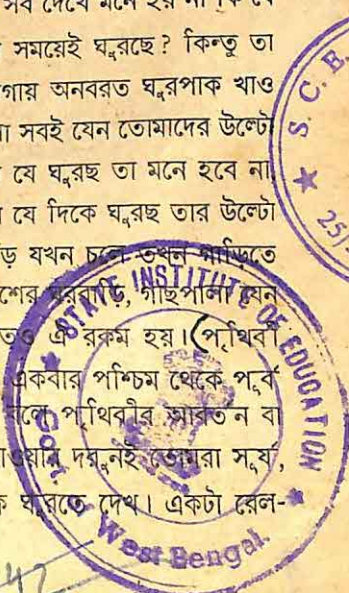 সব দেখে মনে হয় না কি যে
সময়েই ঘুরছে? কিন্তু তা
গায় অনবরত ঘুরপাক খাও
সবই যেন তোমাদের উল্টো
যে ঘুরছ তা মনে হবে না,
যে দিকে ঘুরছ তার উল্টো
যখন চলে তখন গাড়িতে
শের ঘরবাড়ি, গাছপালা যেন
ঐ রকম হয়। (পৃথিবী
একবার পশ্চিম থেকে পূর্ব
বলে পৃথিবীর আবর্তন বা
দরুনই তোমরা সূর্য,
ক ঘুরতে দেখ। একটা রেল-
STATE INSTITUTE OF EDUCATION
Govt. of West Bengal.
S. C. E.
25/
42